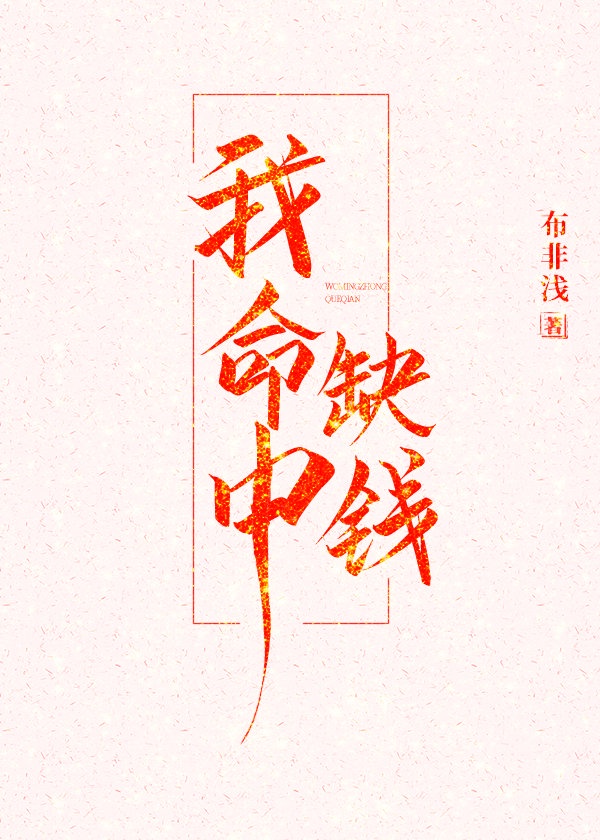 我命中
缺钱
WOMINGZHONG
QUEQIAN
布非浅
著